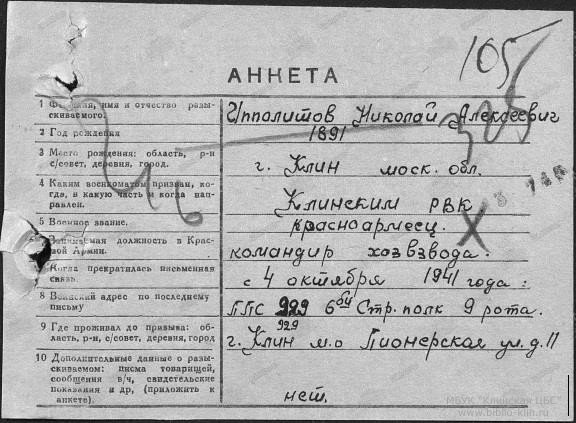 105
АНКЕТА
1 Фамилия, имя и отчество разыскиваемого.
Ипполитов Николай Алексеевич
2 Год рождения
1891
3 Место рождения: область, р-н
с/совет, деревня, город.
г. Клин моск. обл.
4 Каким военкоматом призван, когда, в какую часть и когда направлен.
Клинским РВК
5 Военное звание.
красноармеец.
6 Занимаемая должность в Красной Армии.
командир хозвзвода.
7 Когда прекратилась письменная связь.
с 4 октября 1941 года.
8 Воинский адрес по последнему
письму
ППС 929 6ой Стр. полк 9 рота.
929
9 Где проживал до призыва: область, р-н, с/совет, деревня, город
г. Клин м.о Пионерская ул. д. 11
10 Дополнительные данные о разыскиваемом: письма товарищей,
сообщения в/ч, свидетельские
показания и др, (приложить к
анкете).
нет.
МБУК "Клинская ЦБС"
www.biblio-klin.ru